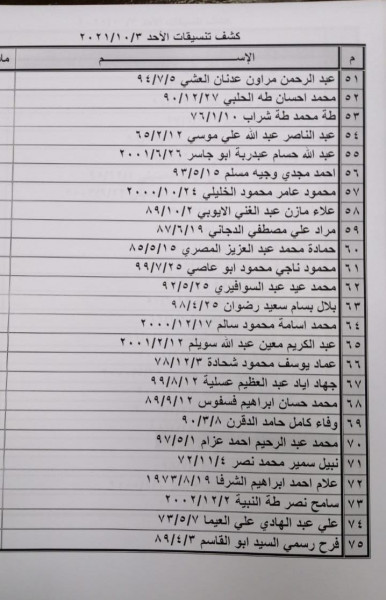 كشف تنسيقات الأحد ٢٠٢١/١٠/٣
م الإســـم
٥١ عبد الرحمن مراون عدنان العشي ٩٤/٧/٥
٥٢ محمد احسان طه الحلبي ٩٠/١٢/٢٧
٥٣ طة محمد طة شراب ٧٦/١/١٠
٥٤ عبد الناصر عبد الله علي موسي ٦٥/٢/١٢
٥٥ عبد الله حسام عبدربة ابو جاسر ٢٠٠١/٦/٢٦
٥٦ احمد مجدي وجيه مسلم ٩٣/٥/١٥
٥٧ محمود عامر محمود الخليلي ٢٠٠٠/١٠/٢٤
٥٨ علاء مازن عبد الغني الايوبي ٨٩/١٠/٢
٥٩ مراد علي مصطفي الدجاني ٨٧/٦/١٩
٦٠ حمادة محمد عبد العزيز المصري ٨٥/٥/١٥
٦١ محمود ناجي محمود ابو عاصي ٩٩/٧/٢٥
٦٢ محمد عيد عبد السوافيري ٩٢/٥/٢٥
٦٣ بلال بسام سعيد رضوان ٩٨/٤/٢٥
٦٤ محمد اسامة محمود سالم ٢٠٠٠/١٢/١٧
٦٥ عبد الكريم معين عبد الله سويلم ٢٠٠١/٢/١٢
٦٦ عماد يوسف محمود شحادة ٧٨/١٢/٣
٦٧ جهاد اياد عبد العظيم عسلية ٩٩/٨/١٢
٦٨ محمد حسان ابراهيم فسفوس ٨٩/٩/١٢
٦٩ وفاء كامل حامد الدقرن ٩٠/٣/٨
٧٠ محمد عبد الرحيم احمد عزام ٩٧/٥/١
٧١ نبيل سمير محمد نصر ٧٢/١١/٤
٧٢ علام احمد ابراهيم الشرفا ١٩٧٣/٨/١٩
٧٣ سامح نصر طة النبية ٢٠٠٢/١٢/٢
٧٤ علي عبد الهادي علي العيما ٧٣/٥/٧
٧٥ فرح رسمي السيد ابو القاسم ٨٩/٤/٣